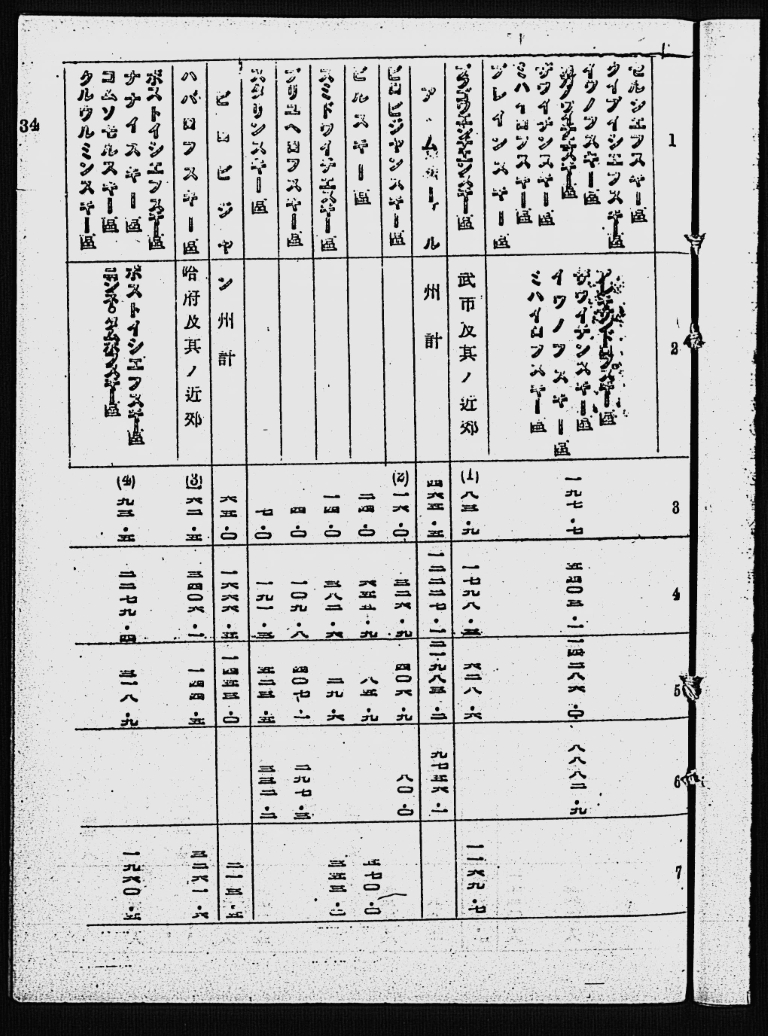 34
1
セルシエフスキー區
クイブイシエフスキー區
イワノフスキー區
ザウイチンスキー區
ミハイロフスキー區
ブレインスキー區
ア ム ー ル 州 計
ビロビジヤンスキー區
ビルスキー區
スミドウイチエスキー區
ブリユヘロフスキー區
スタリンスキー區
ビ ロ ビ ジ ヤ ン 州 計
ハバロフスキー區
ボストイシエフスキー區
ナナイスキー區
コムソモルスキー區
クルウルミンスキー區
2
ザウイチンスキー區
イワノフスキー區
ミハイロフスキー區
武市及其ノ近郊
哈府及其ノ近郊
ボストイシエフスキー區
3
一九七・七
(1)八三・九
四六五・五
(2)一六・〇
二四・〇
一四・〇
四・〇
七・〇
六五・〇
(3)六二・五
(4)九三・五
4
五四〇三・一
一七九八・三
一二二三七・一
三二六・九
六五五・九
三八二・六
一〇九・八
一九一・三
一六六六・五
三四〇六・一
二二七九・四
5
一四二八六・〇
六二八・六
二一九八三・二
四〇六・九
八五・九
二九・六
四〇七・一
五二三・五
一四五三・〇
一四四・五
三一八・九
6
八八八二・九
九七五六・一
八〇・〇
二九七・三
三三二・二
7
一一六九・七
五七〇・〇
三五三・二
二一五・五
三二六一・六
一九六〇・五